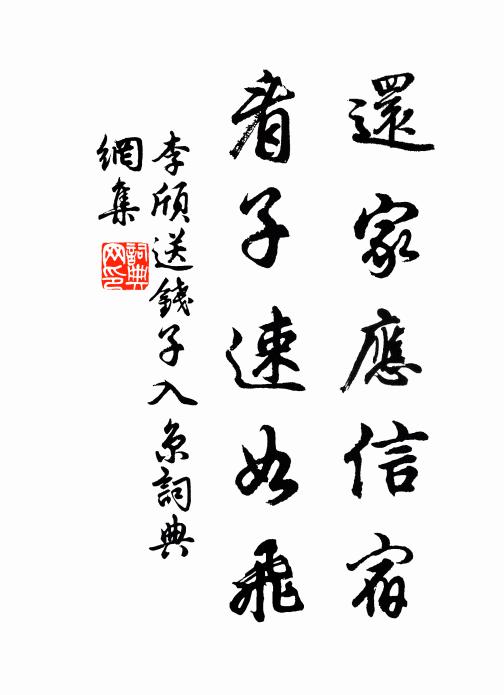 還家應信宿
看子速如飛
李頎送錢子入京詞典
網集
詞典
网印